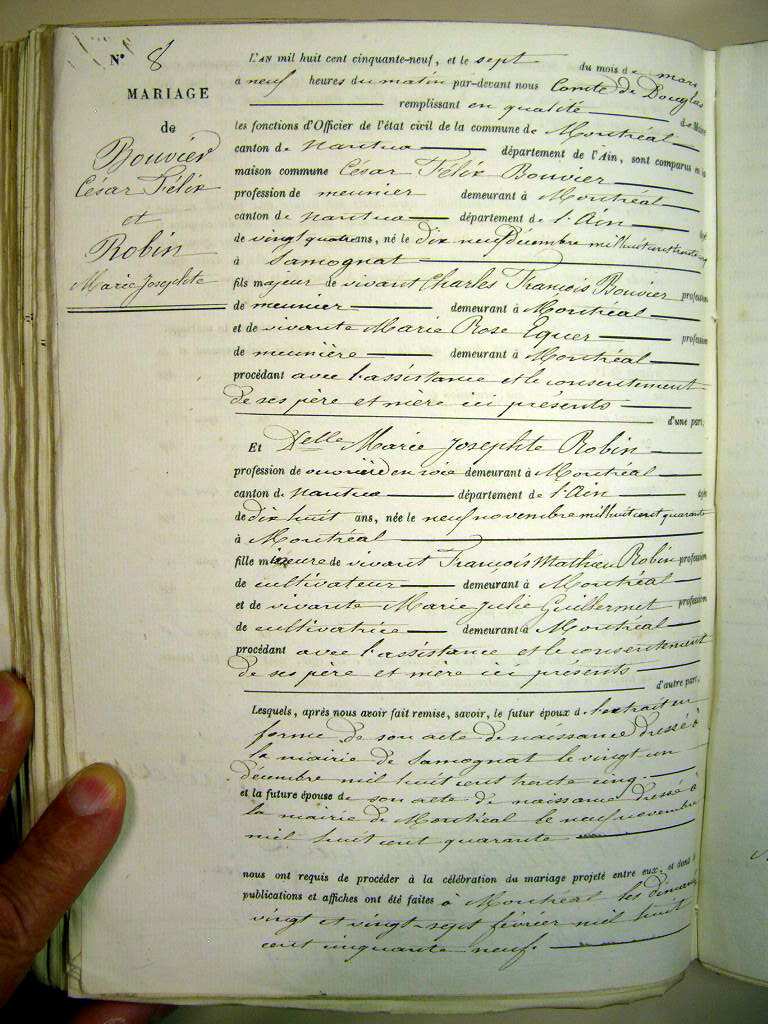 N° 8
MARIAGE
de
Bouvier
César Félix
et
Robin
Marie Josephte
L'AN mil huit cent cinquante-neuf, et le sept du mois de mars
à neuf heures du matin par-devant nous Comte de Douglas
remplissant en qualité de Maire
les fonctions d'Officier de l'état civil de la commune de Montréal
canton de Nantua département de l'Ain, sont comparus en la
maison commune César Félix Bouvier
profession de meunier demeurant à Montréal
canton de Nantua département de l'Ain âgé
de vingt quatre ans, né le dix neuf Décembre mil huit cent trente
à Samognat
fils majeur de vivant Charles François Bouvier profession
de meunier demeurant à Montréal
et de vivante Marie Rose Equer profession
de meunière demeurant à Montréal
procédant avec l'assistance et le consentement
de ses père et mère ici présents
d'une part,
Et Delle Marie Josephte Robin
profession de ouvrière en soie demeurant à Montréal
canton de Nantua département de l'Ain âgée
de dix huit ans, née le neuf novembre mil huit cent quarante
à Montréal
fille mineure de vivant François Mathieu Robin profession
de cultivateur demeurant à Montréal
et de vivante Marie Julie Guillermet profession
de cultivatrice demeurant à Montréal
procédant avec l'assistance et le consentement
de ses père et mère ici présents
d'autre part,
Lesquels, après nous avoir fait remise, savoir, le futur époux de l'extrait en
forme de son acte de naissance dressé à
la mairie de Samognat le vingt un
décembre mil huit cent trente cinq.
et la future épouse de son acte de naissance dressé à
la mairie de Montréal le neuf novembre
mil huit cent quarante
nous ont requis de procéder à la célébration du mariage projeté entre eux, et dont les
publications et affiches ont été faites à Montréal les dimanches
vingt et vingt-sept février mil huit
cent cinquante neuf.